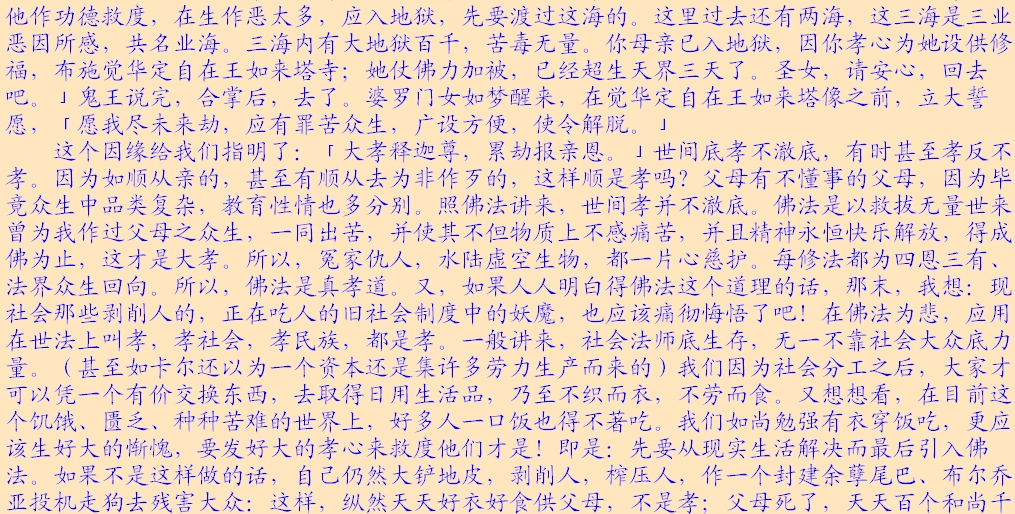 他作功德救度，在生作恶太多，应入地狱，先要渡过这海的。这里过去还有两海，这三海是三业
恶因所感，共名业海。三海内有大地狱百千，苦毒无量。你母亲已入地狱，因你孝心为她设供修
福，布施觉华定自在王如来塔寺；她仗佛力加被，已经超生天界三天了。圣女，请安心，回去
吧。」鬼王说完，合掌后，去了。婆罗门女如梦醒来，在觉华定自在王如来塔像之前，立大誓
愿，「愿我尽未来劫，应有罪苦众生，广设方便，使令解脱。」
这个因缘给我们指明了：「大孝释迦尊，累劫报亲恩。」世间底孝不澈底，有时甚至孝反不
孝。因为如顺从亲的，甚至有顺从去为非作歹的，这样顺是孝吗？父母有不懂事的父母，因为毕
竟众生中品类复杂，教育性情也多分别。照佛法讲来，世间孝并不澈底。佛法是以救拔无量世来
曾为我作过父母之众生，一同出苦，并使其不但物质上不感痛苦，并且精神永恒快乐解放，得成
佛为止，这才是大孝。所以，冤家仇人，水陆虚空生物，都一片心慈护。每修法都为四恩三有、
法界众生回向。所以，佛法是真孝道。又，如果人人明白得佛法这个道理的话，那末，我想：现
社会那些剥削人的，正在吃人的旧社会制度中的妖魔，也应该痛彻悔悟了吧！在佛法为悲，应用
在世法上叫孝，孝社会，孝民族，都是孝。一般讲来，社会法师底生存，无一不靠社会大众底力
量。（甚至如卡尔还以为一个资本还是集许多劳力生产而来的）我们因为社会分工之后，大家才
可以凭一个有价交换东西，去取得日用生活品，乃至不织而衣，不劳而食。又想想看，在目前这
个饥饿、匮乏、种种苦难的世界上，好多人一口饭也得不著吃。我们如尚勉强有衣穿饭吃，更应
该生好大的惭愧，要发好大的孝心来救度他们才是！即是：先要从现实生活解决而最后引入佛
法。如果不是这样做的话，自己仍然大铲地皮，剥削人，榨压人，作一个封建余孽尾巴、布尔乔
亚投机走狗去残害大众；这样，纵然天天好衣好食供父母，不是孝；父母死了，天天百个和尚千